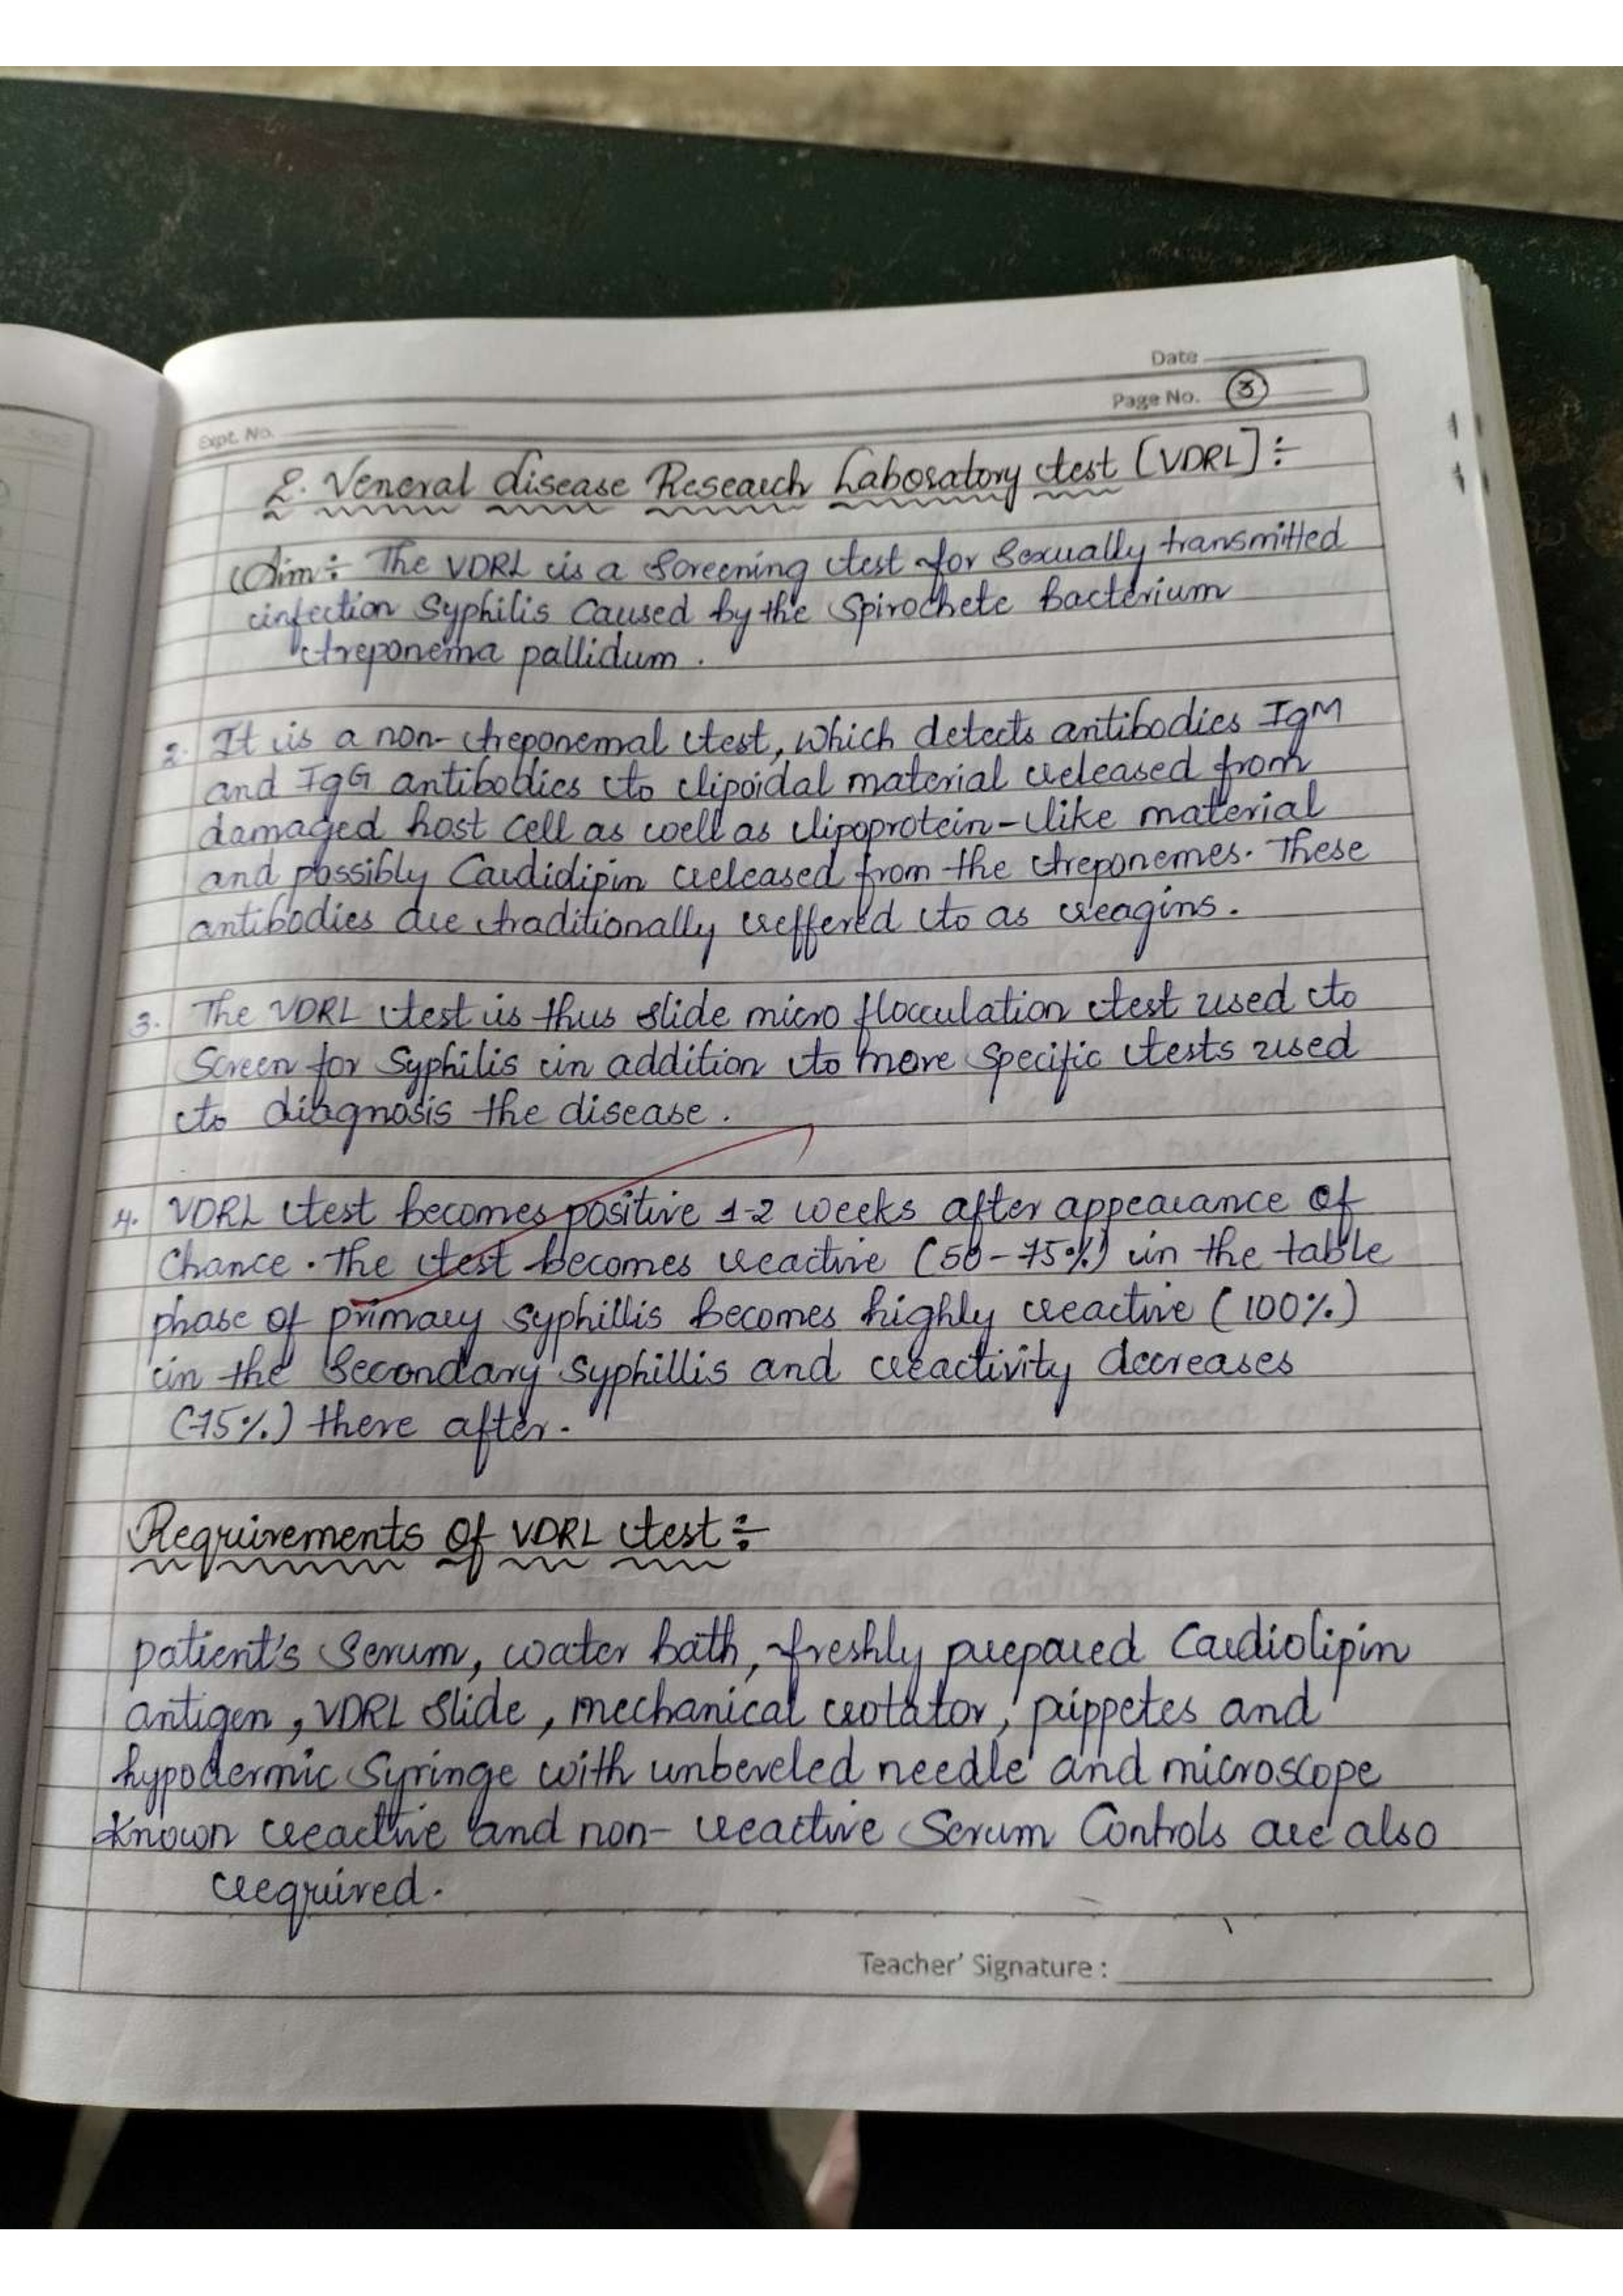 Date
Page No. 3
Expt. No.
2. Veneral disease Research Laboratory test [VDRL]:-
Aim:- The VDRL is a Screening test for Sexually transmitted
infection Syphilis Caused by the Spirochete Bacterium
treponema pallidum.
2. It is a non-treponemal test, which detects antibodies IgM
and IgG antibodies to lipoidal material released from
damaged host cell as well as lipoprotein-like material
and possibly Cardidipin released from the treponemes. These
antibodies are traditionally reffered to as reagins.
3. The VDRL test is thus slide micro flocculation test used to
Screen for Syphilis in addition to more specific tests used
to diagnosis the disease.
4. VDRL test becomes positive 1-2 weeks after appearance of
Chance. The test becomes reactive (50-75%) in the table
phase of primary Syphillis becomes highly reactive (100%)
in the Secondary Syphillis and reactivity decreases
(75%) there after.
Requirements of VDRL test:-
patient's Serum, water bath, freshly prepared Cardiolipin
antigen, VDRL Slide, mechanical rotator, pippetes and
hypodermic Syringe with unbeveled needle and microscope
Known reactive and non- reactive Serum Controls are also
required.
Teacher' Signature :